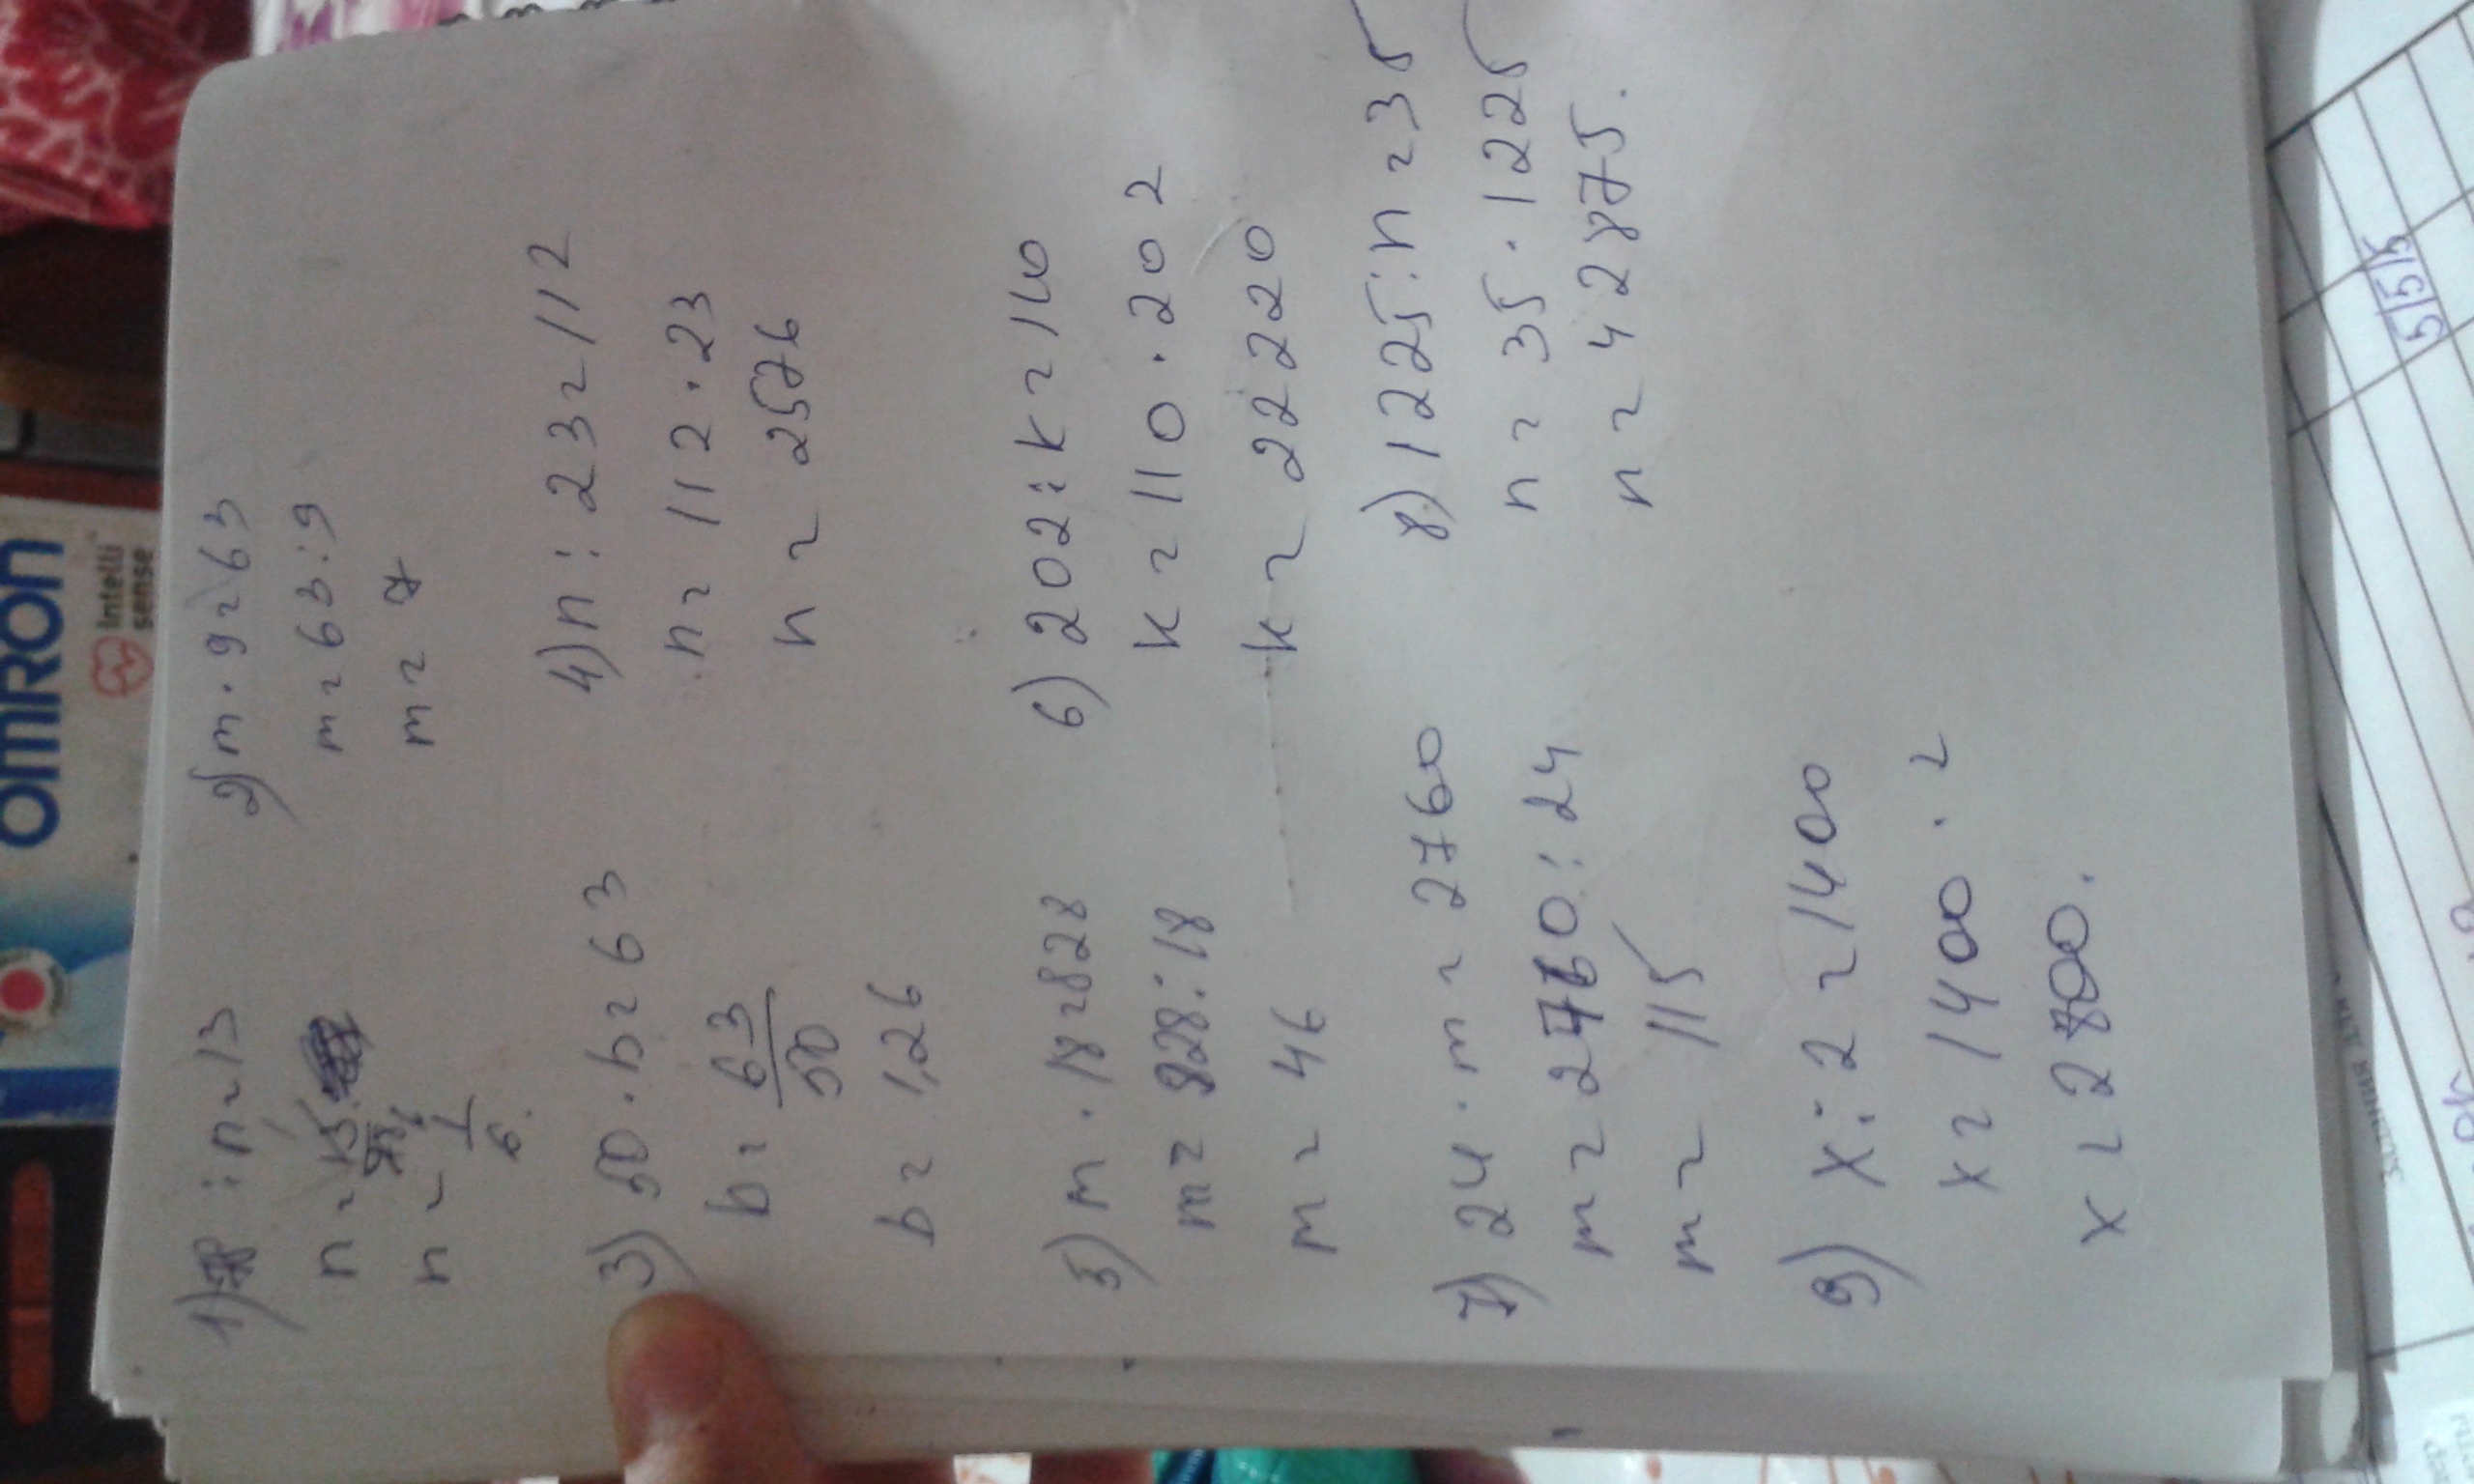 OMRON
Intelli
sense
1) 78 : n = 13
n =
n = 1/6.
2) m · 9 = 63
m = 63 : 9
m = 7
3) 50 · b = 63
b = 63/50
b = 1,26
4) n : 23 = 112
n = 112 · 23
n = 2576
5) m · 18 = 828
m = 828 : 18
m = 46
6) 202 : k = 110
k = 110 · 202
k = 22220
7) 24 · m = 2760
m = 2760 : 24
m = 115
8) 1225 : n = 35
n = 35 · 1225
n = 42875.
9) x : 2 = 1400
x = 1400 · 2
x = 2800.
5/5/5